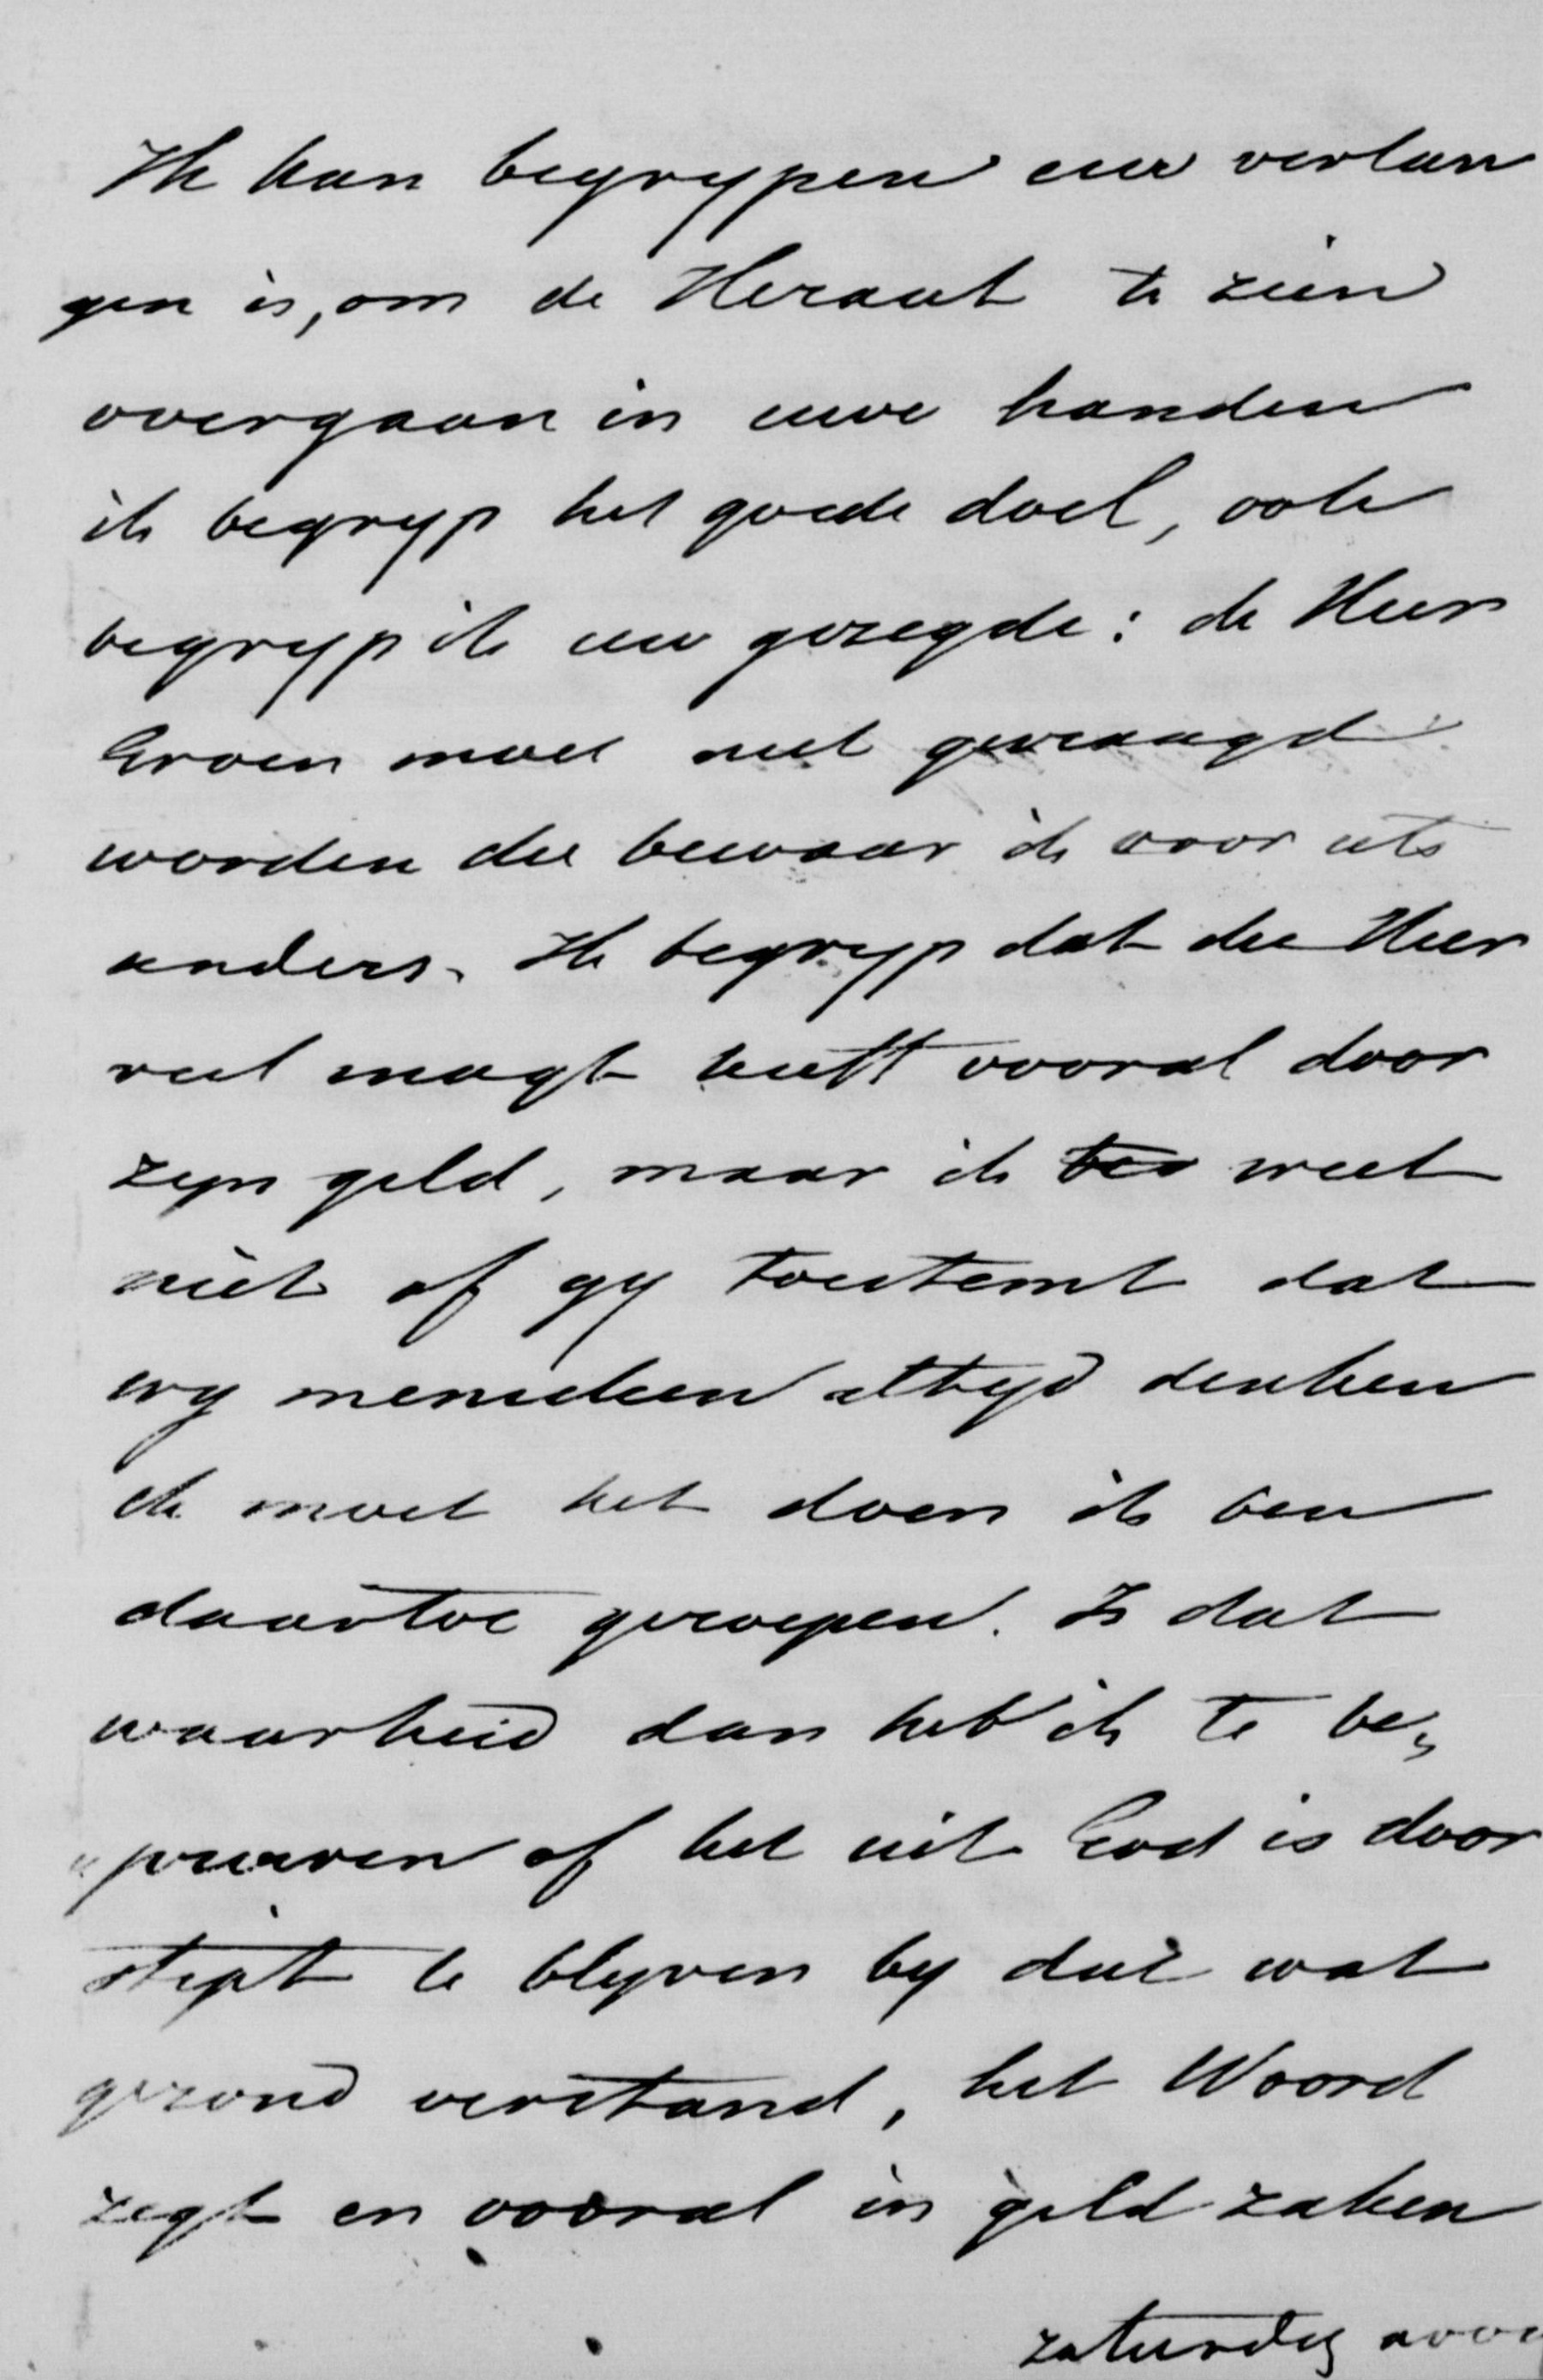 Ik kan begrypen uw verlan
gen is, om de Heraut te zien
overgaan in uwe handen
ik begryp het goede doel, ook
begryp ik uw gezegde: de Heer
Groen moet niet gevraagd
worden die bewaar ik voor iets
anders. Ik begryp dat die Heer
veel magt heeft vooral door
zyn geld, maar ik weet
niet of gy toestemt dat
wy menschen altyd denken
ik moet het doen ik ben
daartoe geroepen. Is dat
waarheid dan heb ik te be„
„proeven of het uit God is door
stipt te blyven by dat wat
gezond verstand, het Woord
zegt en vooral in geld zaken
zaturdag